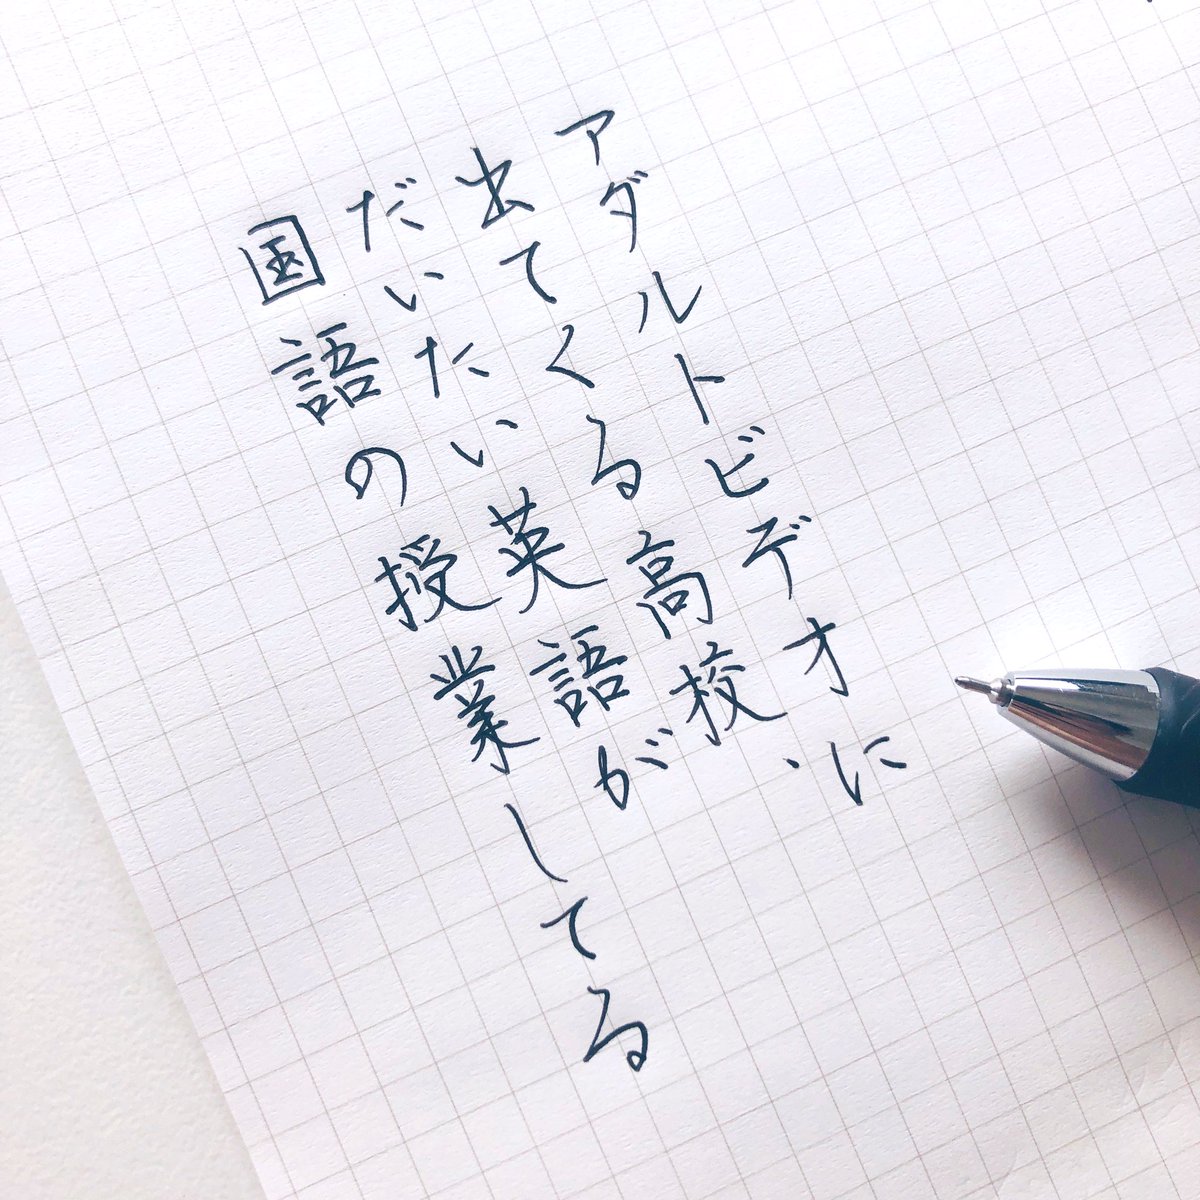 アダルトビデオに
出てくる高校、
だいたい英語が
国語の授業してる